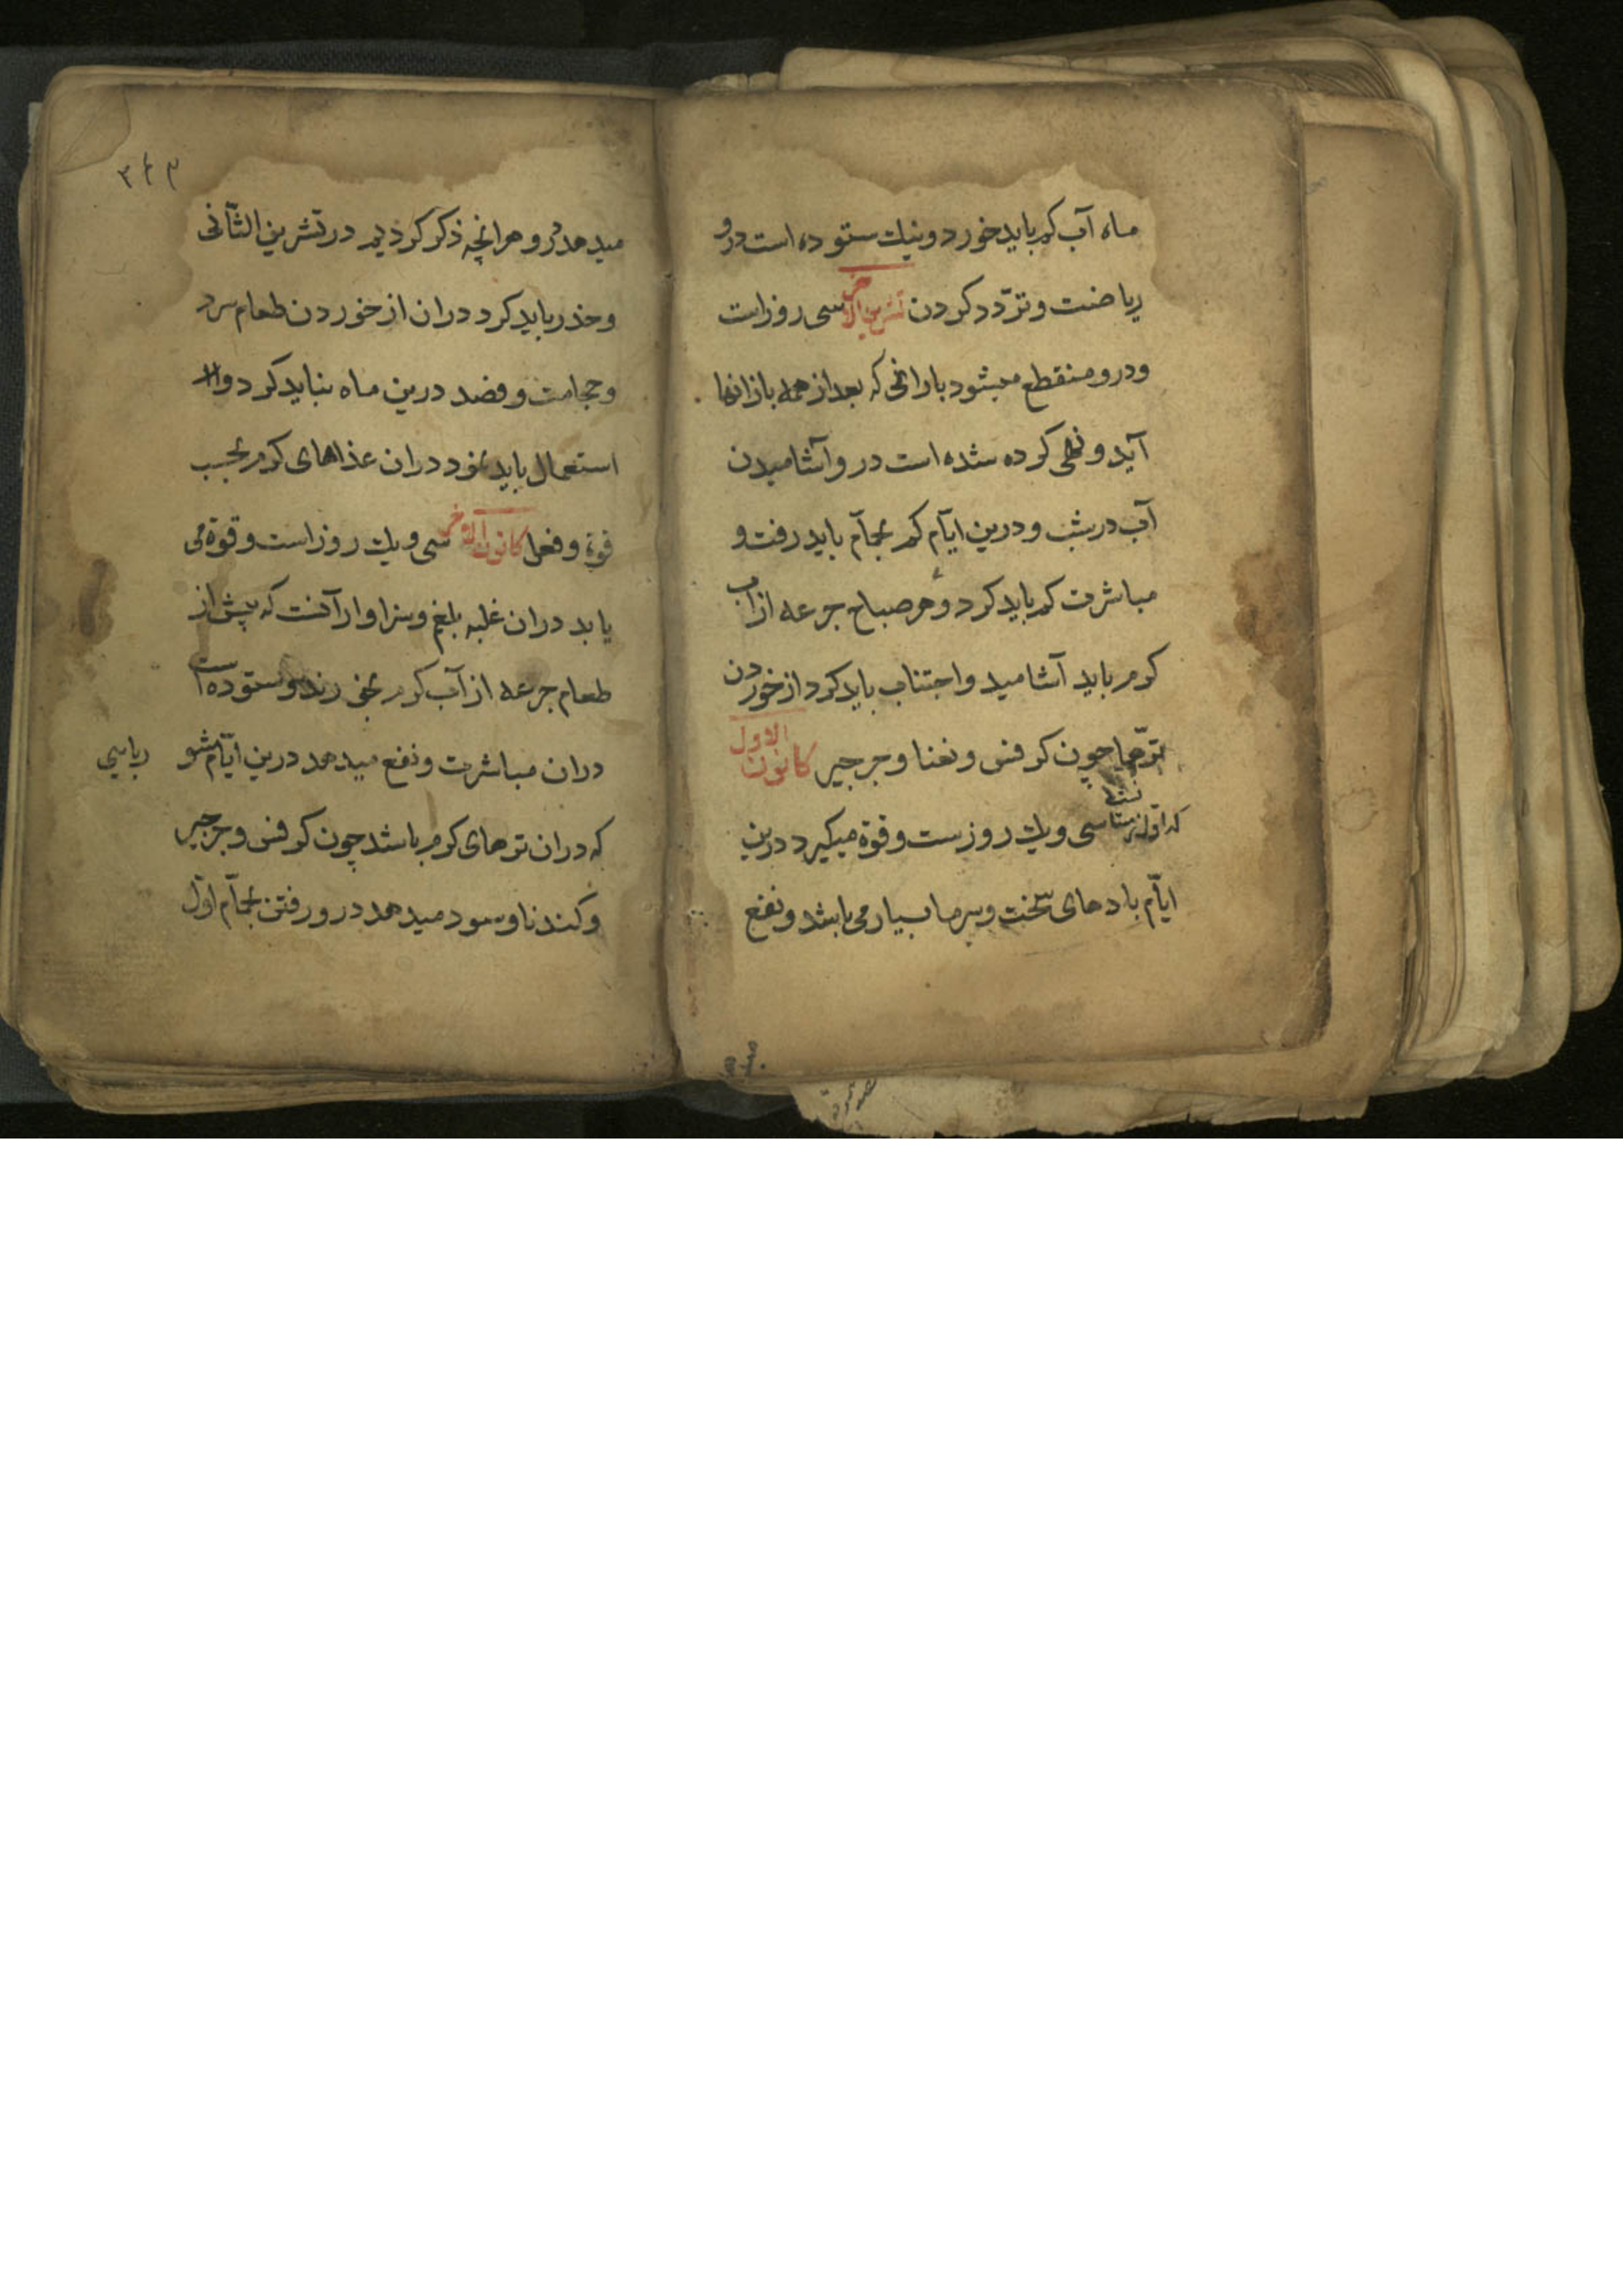 ماه آب کم باید خورد و نیك ستوده است درو
ریاضت و تردّد کردن تشرین الاخر سی روز است
و درو منقطع میشود بارانی که بعد از همه بارانها
آید و نهی کرده شده است درو آشامیدن
آب در شب و درین ایّام کم بحمّام باید رفت و
مباشرت کم باید کرد و هر صباح جرعه از آب
کرم باید آشامید و اجتناب باید کرد از خوردن
ترّها چون کرفس و نعنا و جرجیر کانون الاول
که اول زمستانست سی و یك روزست و قوة میکیرد درین
ایّام بادهای سخت و سرما بسیار می باشد و نفع
۳۴۳
میدهد درو هر انچه ذکر کردیم در تشرین الثّانی
و حذر باید کرد دران از خوردن طعام سرد
و حجامت و فصد درین ماه نباید کرد و الا
استعمال باید نمود دران غذاهای کرم بحسب
قوة و فعل کانون الاخر سی و یك روز است و قوة می
یابد دران غلبه بلغم و سزاوار آنست که پیش از
طعام جرعه از آب کرم بخورند و ستوده است
دران مباشرت و نفع میدهد درین ایّام شو
رباسی
که دران ترهای کرم باشد چون کرفس و جرجیر
و کندنا و سود میدهد درو رفتن بحمّام اوّل